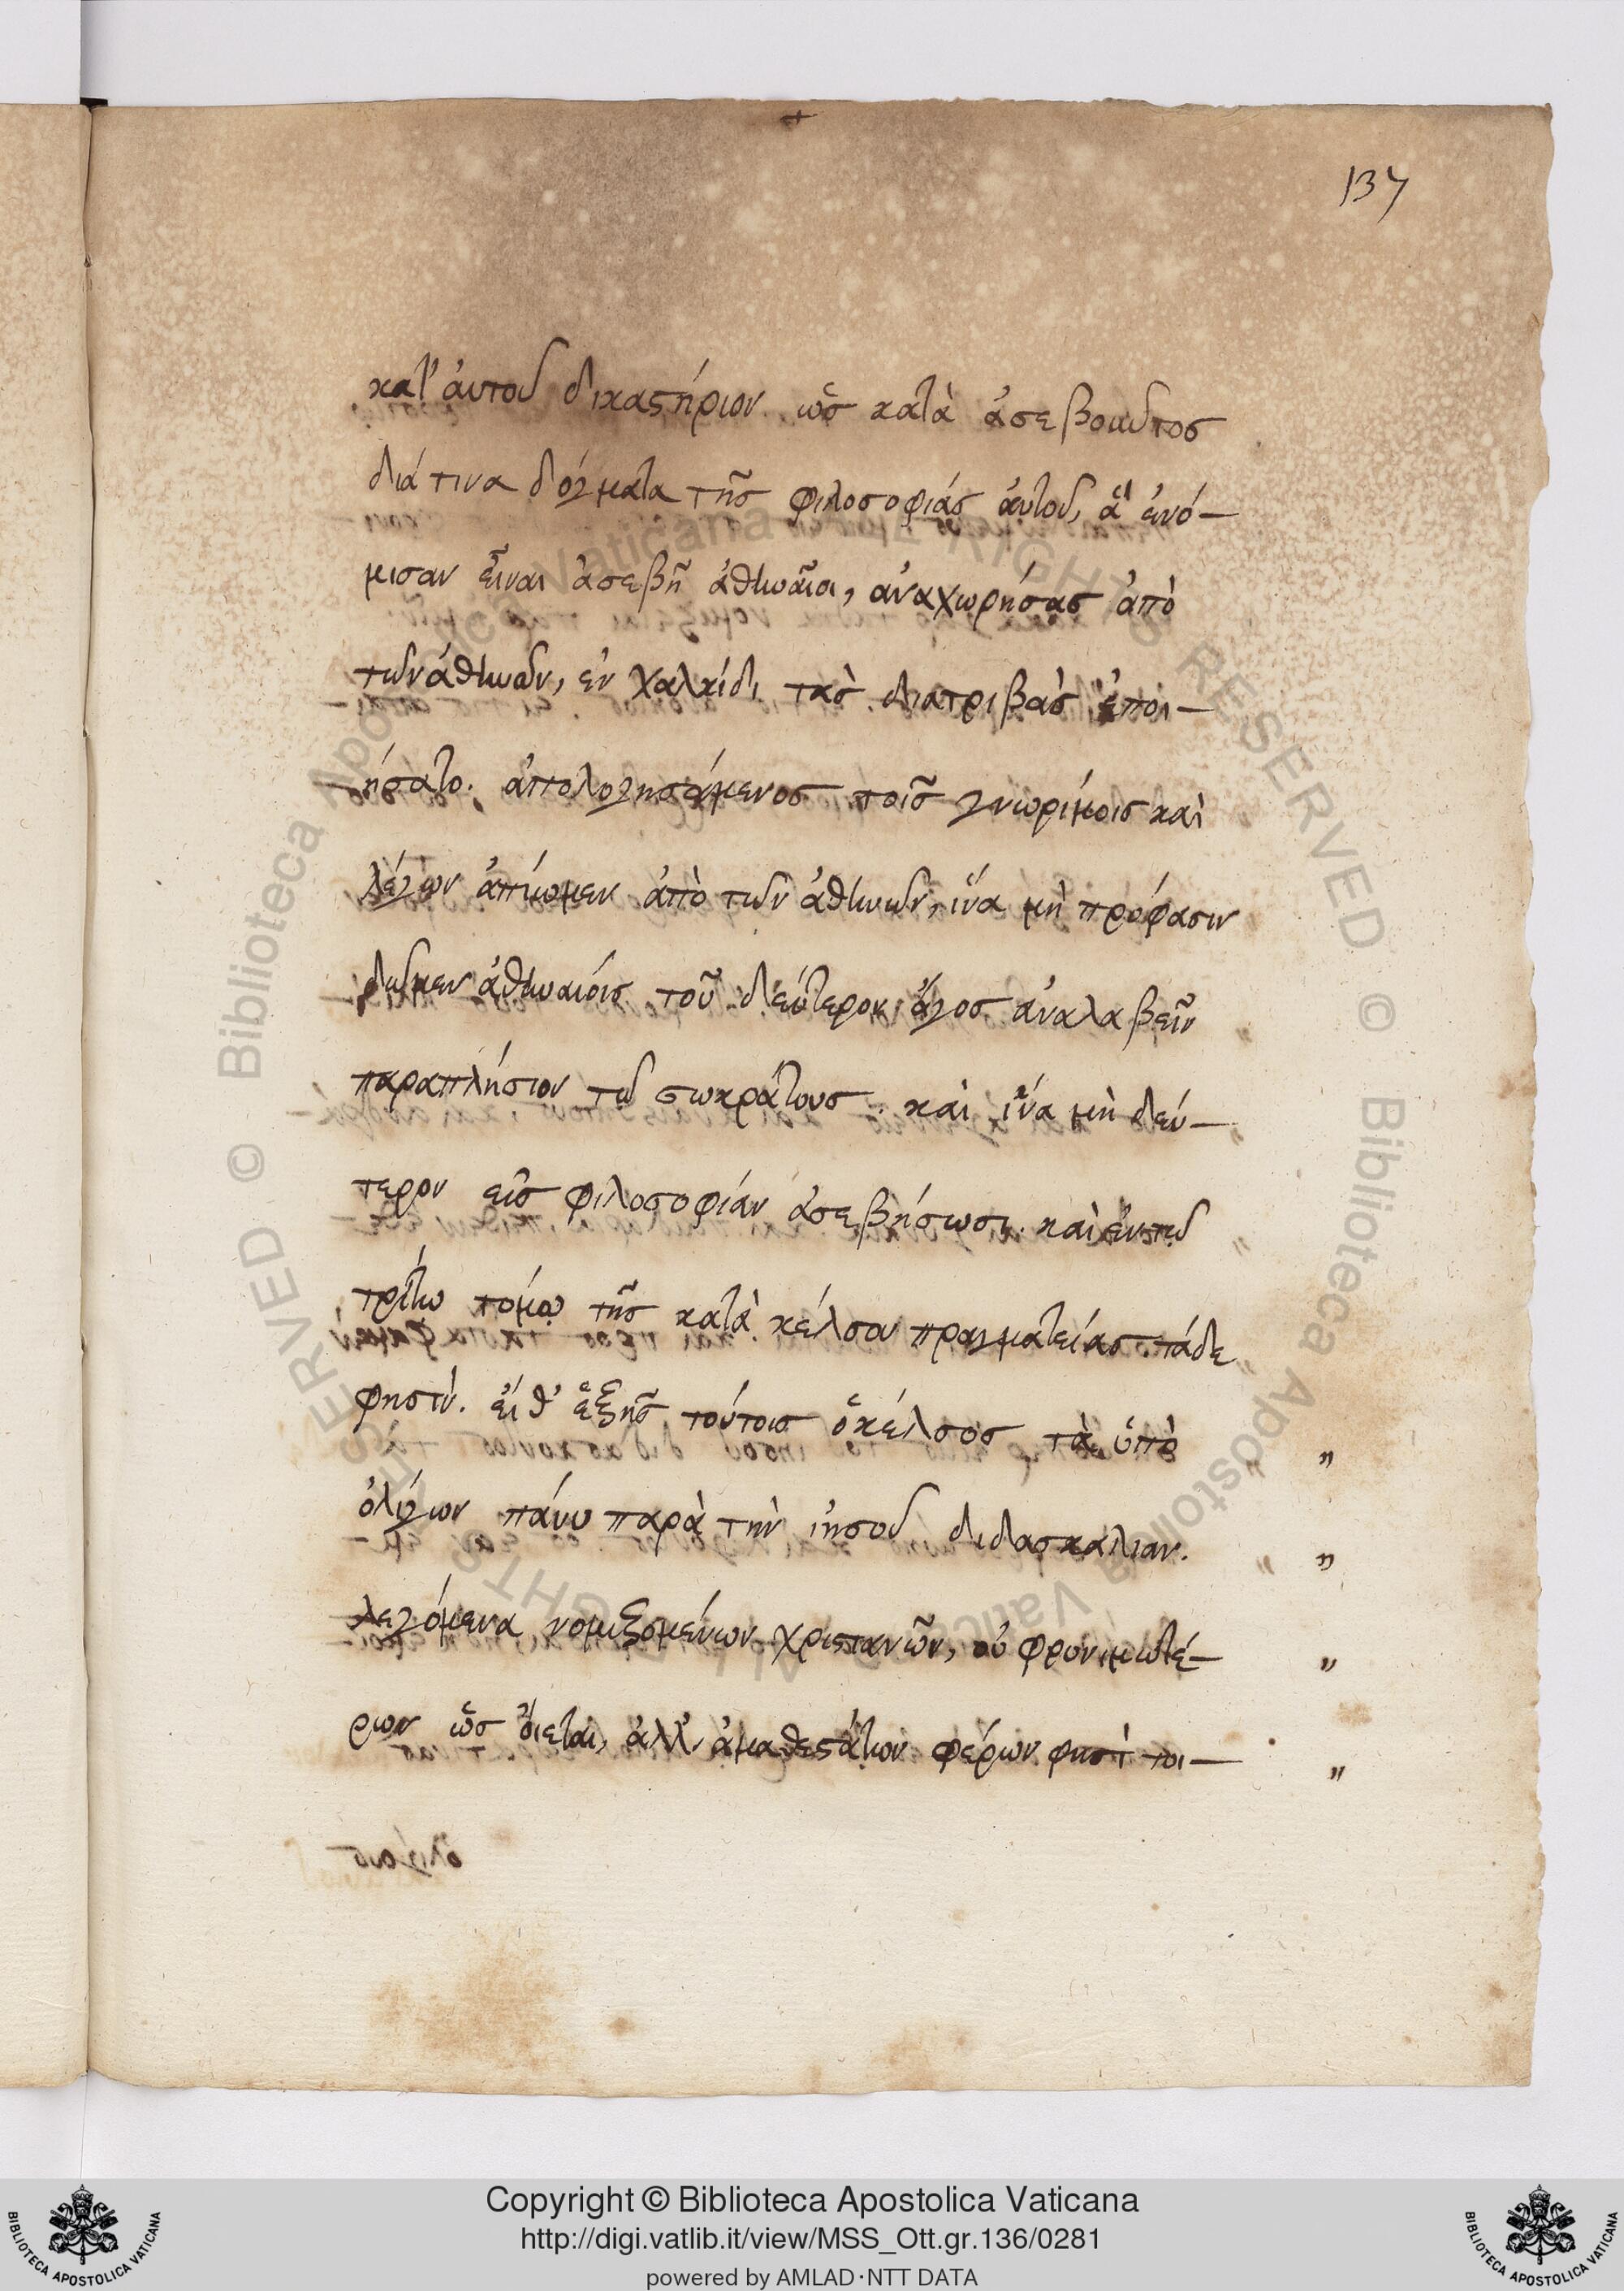 137
κατ' ἀυτοῦ δικαστήριον ὡς κατὰ ἀσεβοῦντος
διά τινα δόγματα τῆς φιλοσοφιάς ἀυτοῦ, ἁ ἐνό-
μισαν εἶναι ἀσεβῆ ἀθηναῖοι, ἀναχωρήσας ἀπὸ
τῶν ἀθηνῶν, ἐν χαλκίδι τὰς διατριβὰς ἐποι-
ήσατο. ἀπολογησάμενος τοῖς γνωρίμοις καὶ
λέγων ἀπίωμεν ἀπὸ τῶν ἀθηνῶν, ἵνα μὴ πρόφασιν
δῶμεν ἀθηναιόις τοῦ δεύτερον ἄγος ἀναλαβεῖν
παραπλήσιον τῶ σωκράτους. καὶ ἵνα μὴ δεύ-
τερον εἰς φιλοσοφίαν ἀσεβήσωσι. καὶ ἐν τῶ
τρίτω τόμω τῆς κατὰ κέλσου πραγματείας τάδε
φησίν. εἶθ' ἑξῆς τούτοις ὁ κέλσος τὰ ὑπὸ "
ὀλίγων πάνυ παρὰ τὴν ἰησοῦ διδασκαλιαν. "
λεγόμενα νομιζομένων χριστανῶν, οὐ φρονιμωτέ- "
ρων ὡς ὄιεται, ἀλλ' ἀμαθεστάτων φέρων φησὶ τοι- "
Copyright © Biblioteca Apostolica Vaticana
http://digi.vatlib.it/view/MSS_Ott.gr.136/0281
powered by AMLAD·NTT DATA
BIBLIOTECA APOSTOLICA VATICANA
BIBLIOTECA APOSTOLICA VATICANA